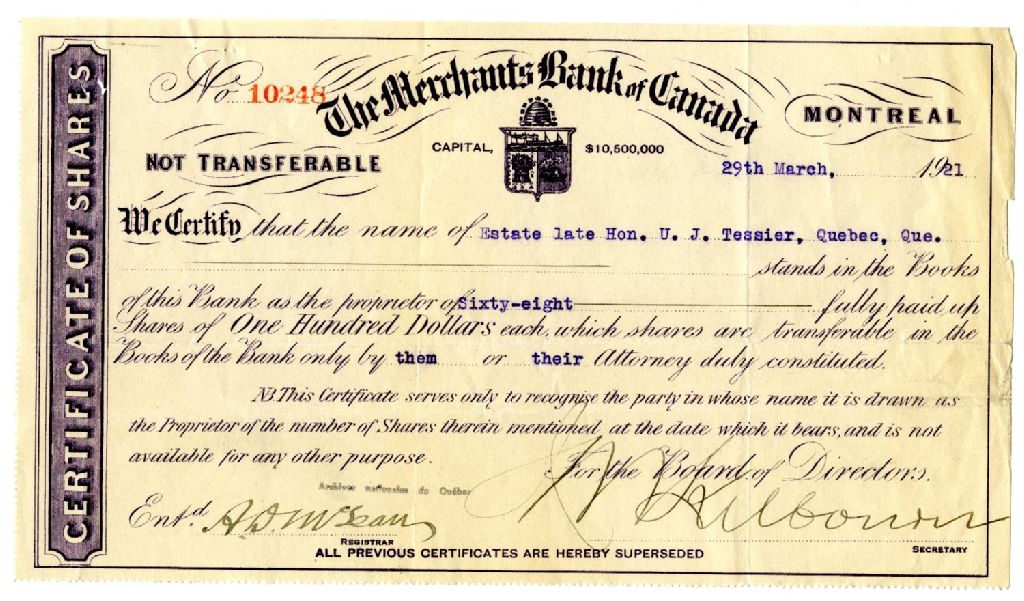 CERTIFICATE OF SHARES
No 10248
The Merchants Bank of Canada
MONTREAL
NOT TRANSFERABLE
CAPITAL, $10,500,000
29th March, 1921
We Certify that the name of Estate late Hon. U. J. Tessier, Quebec, Que.
stands in the Books
of this Bank as the proprietor of Sixty-eight fully paid up
Shares of One Hundred Dollars each, which shares are transferable in the
Books of the Bank only by them or their Attorney duly constituted.
NB This Certificate serves only to recognise the party in whose name it is drawn as
the Proprietor of the number of Shares therein mentioned at the date which it bears, and is not
available for any other purpose.
For the Board of Directors.
Archives nationales du Québec
Entd.
REGISTRAR
SECRETARY
ALL PREVIOUS CERTIFICATES ARE HEREBY SUPERSEDED